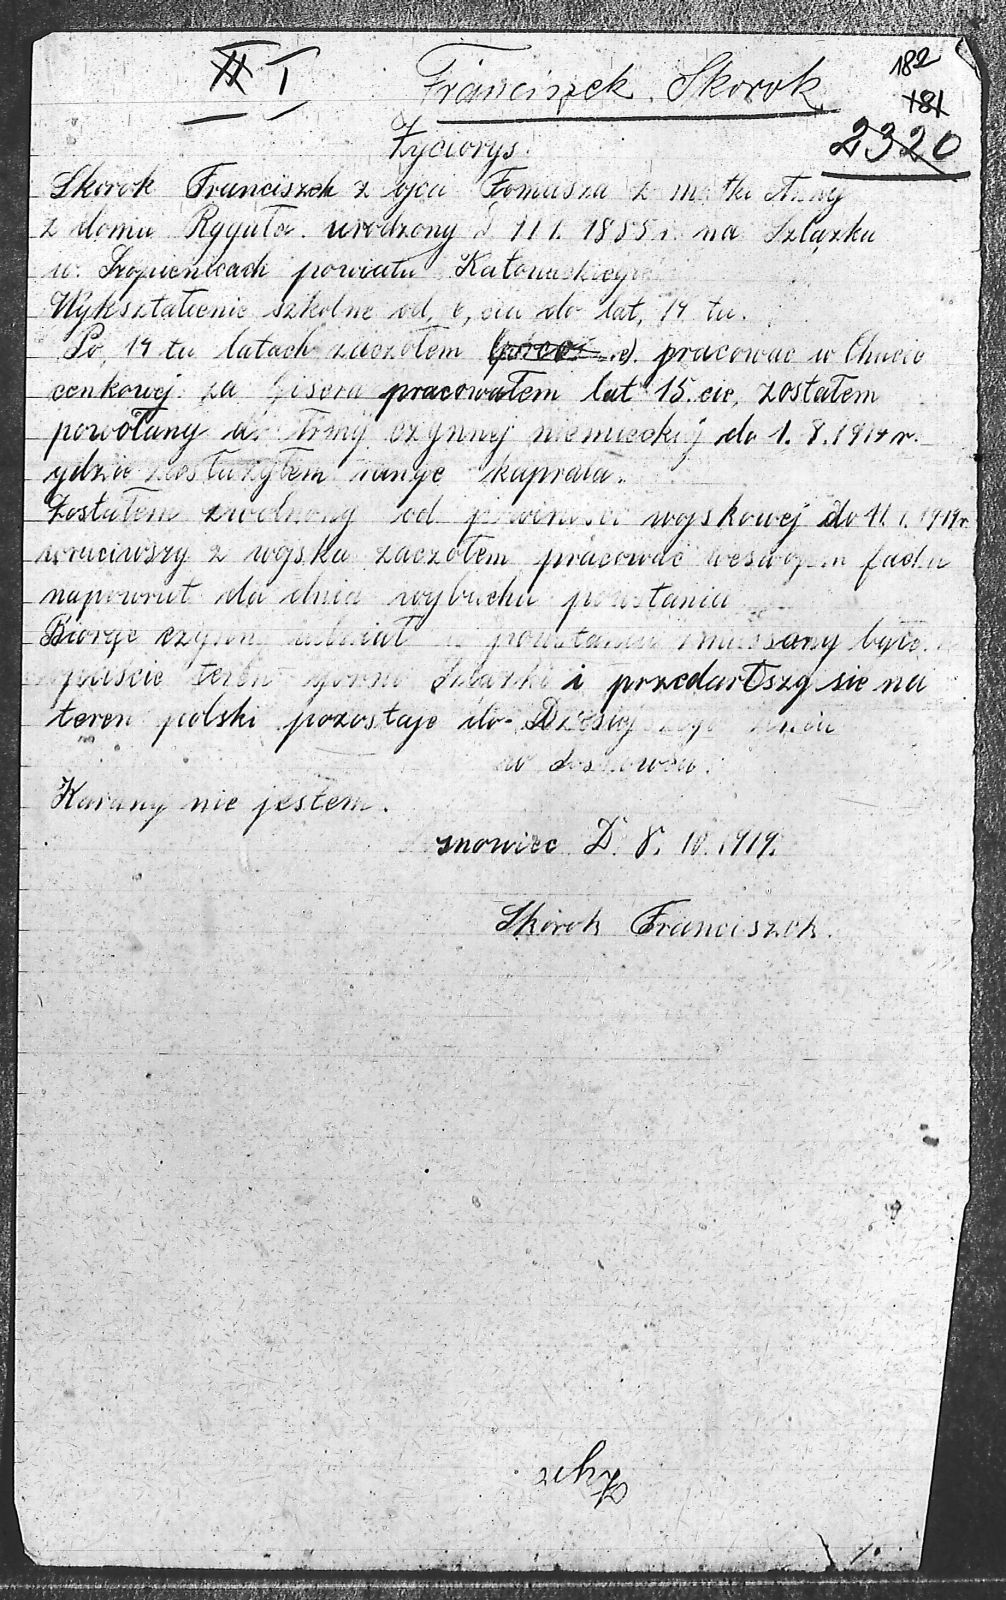 II I Franciszek Skorok 182
181
2320
Życiorys.
Skorok Franciszek z ojca Tomasza z matki Anny
z domu Ryguła. urodzony d. 11 1. 1885 r. na Szlązku
w. Szopienicach powiatu Katowuskiego
Wykształcenie szkolne od, 6, ciu do lat, 14 tu.
Po, 14 tu latach zaczołem pracować w Chucie
cenkowej za Gisera pracowałem lat 15. cie, zostałem
powołany do Armji czynnej niemieckij do 1. 8. 1914 r.
gdzie zosłużyłem rangę kaprala.
Zostałem zwolniony od powiności wojskowej do 11. 1. 1919 r.
wruciwszy z wojska zaczołem pracować weswojem fachu
napowrut do dnia wybuchu powstania
Biorąc czynny udział w powstaniu zmuszany byłem
opuście teren gorni Szlązki i przedartszy sie na
teren polski pozostaje do Dzisiejszego dnia
w
Karany nie jestem.
snowiec D. 8. 10. 1919.
Skorok Franciszek.